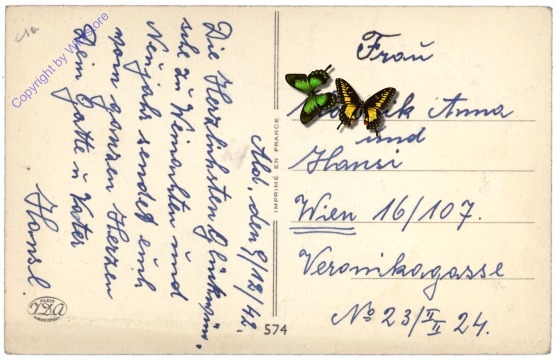 Die Herzlichsten Glückwün-
sche zu Weinachten und
Neujahr sendet euch
vom ganzen Herzen
Dein Gatte u Vater
Hansl.
den 9/12/42.
Frau
Anna
und
Hansi
Wien 16/107.
Veronikagasse
No 23/II/II 24.
IMPRIMÉ EN FRANCE
574
PARIS
Copyright by